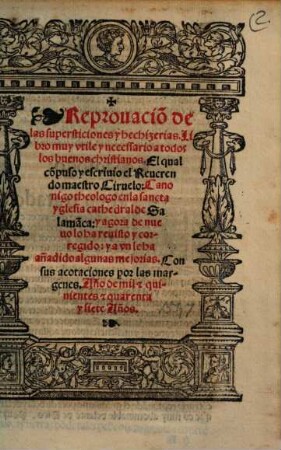 2
Reprouaciō de
las supersticiones y hechizerias. Li
bro muy vtile y necessario a todos
los buenos christianos. El qual
cōpuso y escriuio el Reueren
do maestro Ciruelo: Cano
nigo theologo en la sancta
yglesia cathedral de Sa
lamāca: y agora de nue
uo lo ha reuisto y cor
regido: y a vn lo ha
añadido algunas mejorias. Con
sus acotaciones por las mar
genes. Año de mil & qui
nientes & quarenta
y siete Años.
1547